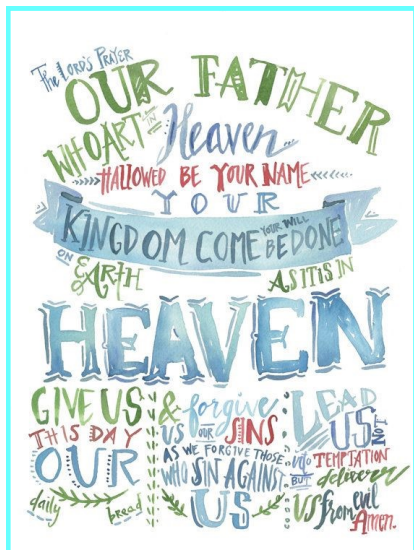 The LORD'S PRAYER
OUR FATHER
WHO ART in Heaven
HALLOWED BE YOUR NAME
YOUR
KINGDOM COME YOUR WILL BE DONE
ON EARTH AS IT IS IN
HEAVEN
GIVE US
THIS DAY
OUR
daily bread
& forgive
US OUR SINS
AS WE FORGIVE THOSE
WHO SIN AGAINST
US
LEAD
US NOT
INTO TEMPTATION
BUT deliver
US from evil
Amen.